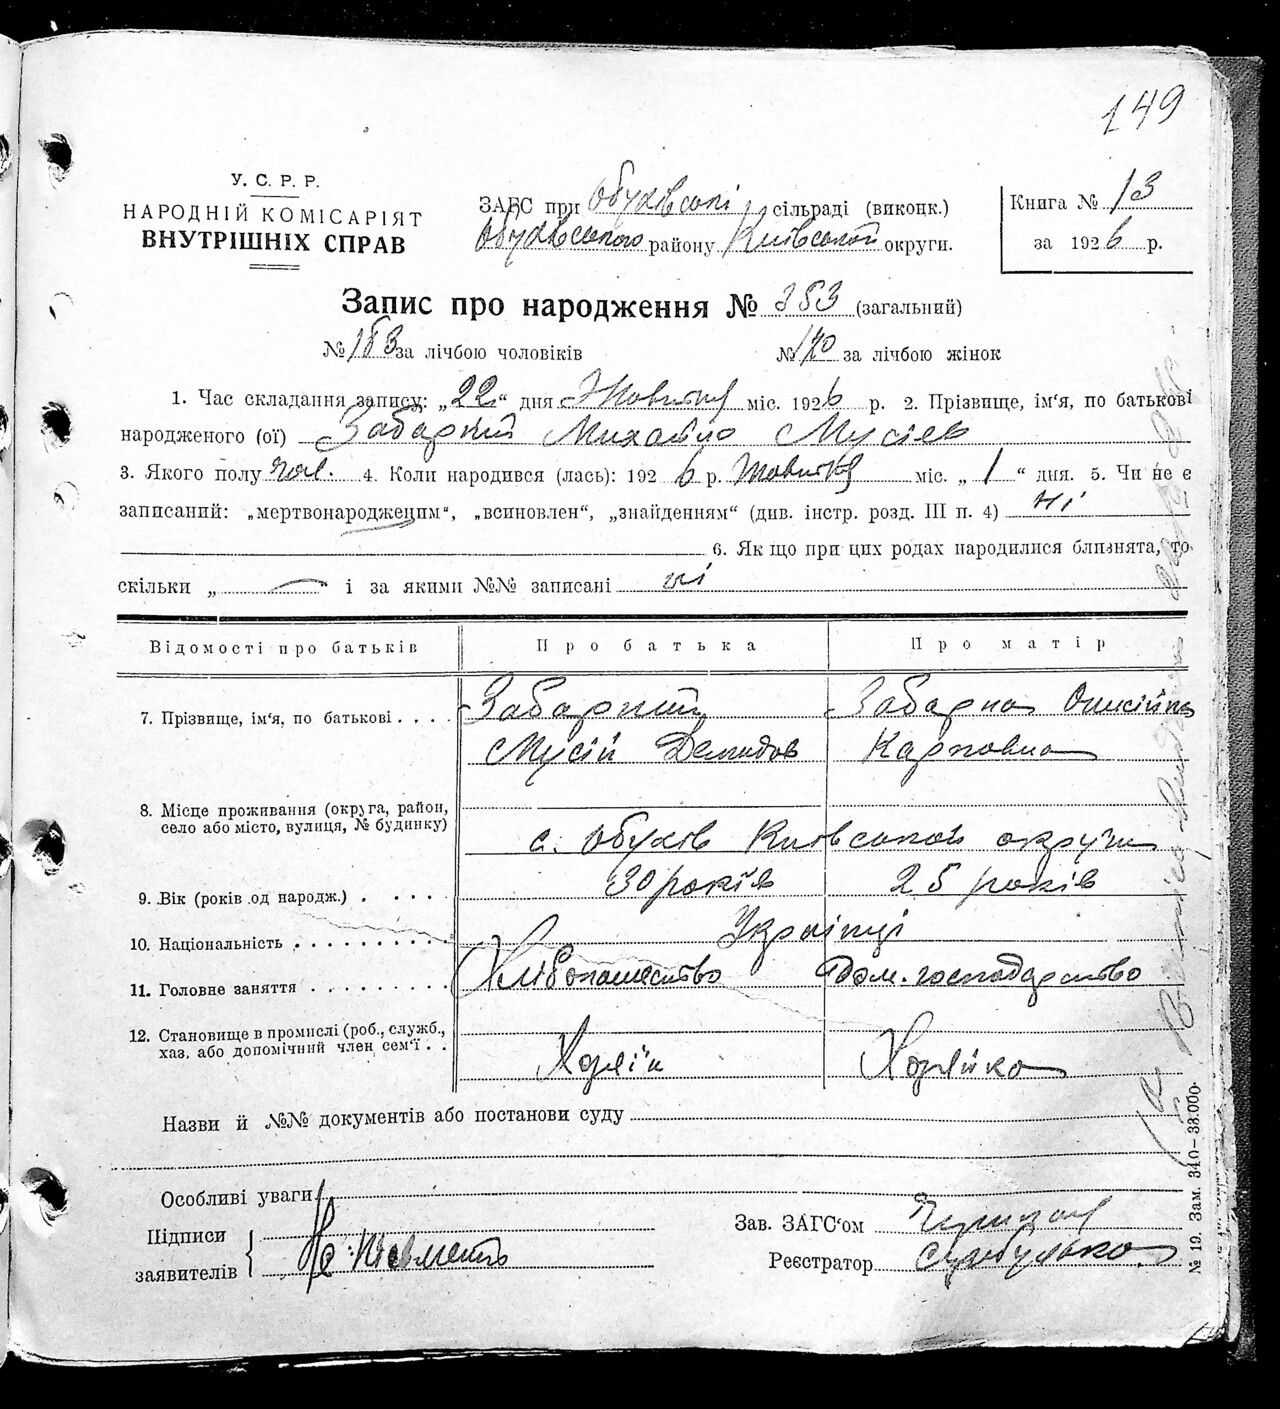 149
У. С. Р. Р.
НАРОДНІЙ КОМІСАРІЯТ
ВНУТРІШНІХ СПРАВ
ЗАГС при Обухівські сільраді (виконк.)
Обухівського району Київської округи.
Книга № 13
за 1926 р.
Запис про народження № 353 (загальний)
№ 183 за лічбою чоловіків № 170 за лічбою жінок
1. Час складання запису: „22“ дня Жовтня міс. 1926 р. 2. Прізвище, ім'я, по батькові
народженого (ої) Забарний Михайло Мусіев
3. Якого полу чол. 4. Коли народився (лась): 1926 р. Жовтня міс. „ 1 “ дня. 5. Чи не є
записаний: „мертвонародженим“, „всиновлен“, „знайденням“ (див. інстр. розд. III п. 4) ні
6. Як що при цих родах народилися близнята, то
скільки „ — і за якими №№ записані ні
Відомості про батьків Про батька Про матір
7. Прізвище, ім'я, по батькові . . . . Забарний Забарна Онисійка
Мусій Демидов Карповна
8. Місце проживання (округа, район,
село або місто, вулиця, № будинку)
с. Обухів Київської округи
9. Вік (років од народж.) . . . . . 30 років 25 років
10. Національність . . . . . . . . . . Українці
11. Головне заняття . . . . . . . . . Хлібопашество Дом. господарство
12. Становище в промислі (роб., служб.,
хаз. або допомічний член сем'ї . .
Хазяїн Хазяйка
Назви й №№ документів або постанови суду
Особливі уваги
Підписи
заявителів
Зав. ЗАГС'ом
Реєстратор
№ 19. Зам. 340—38.000.